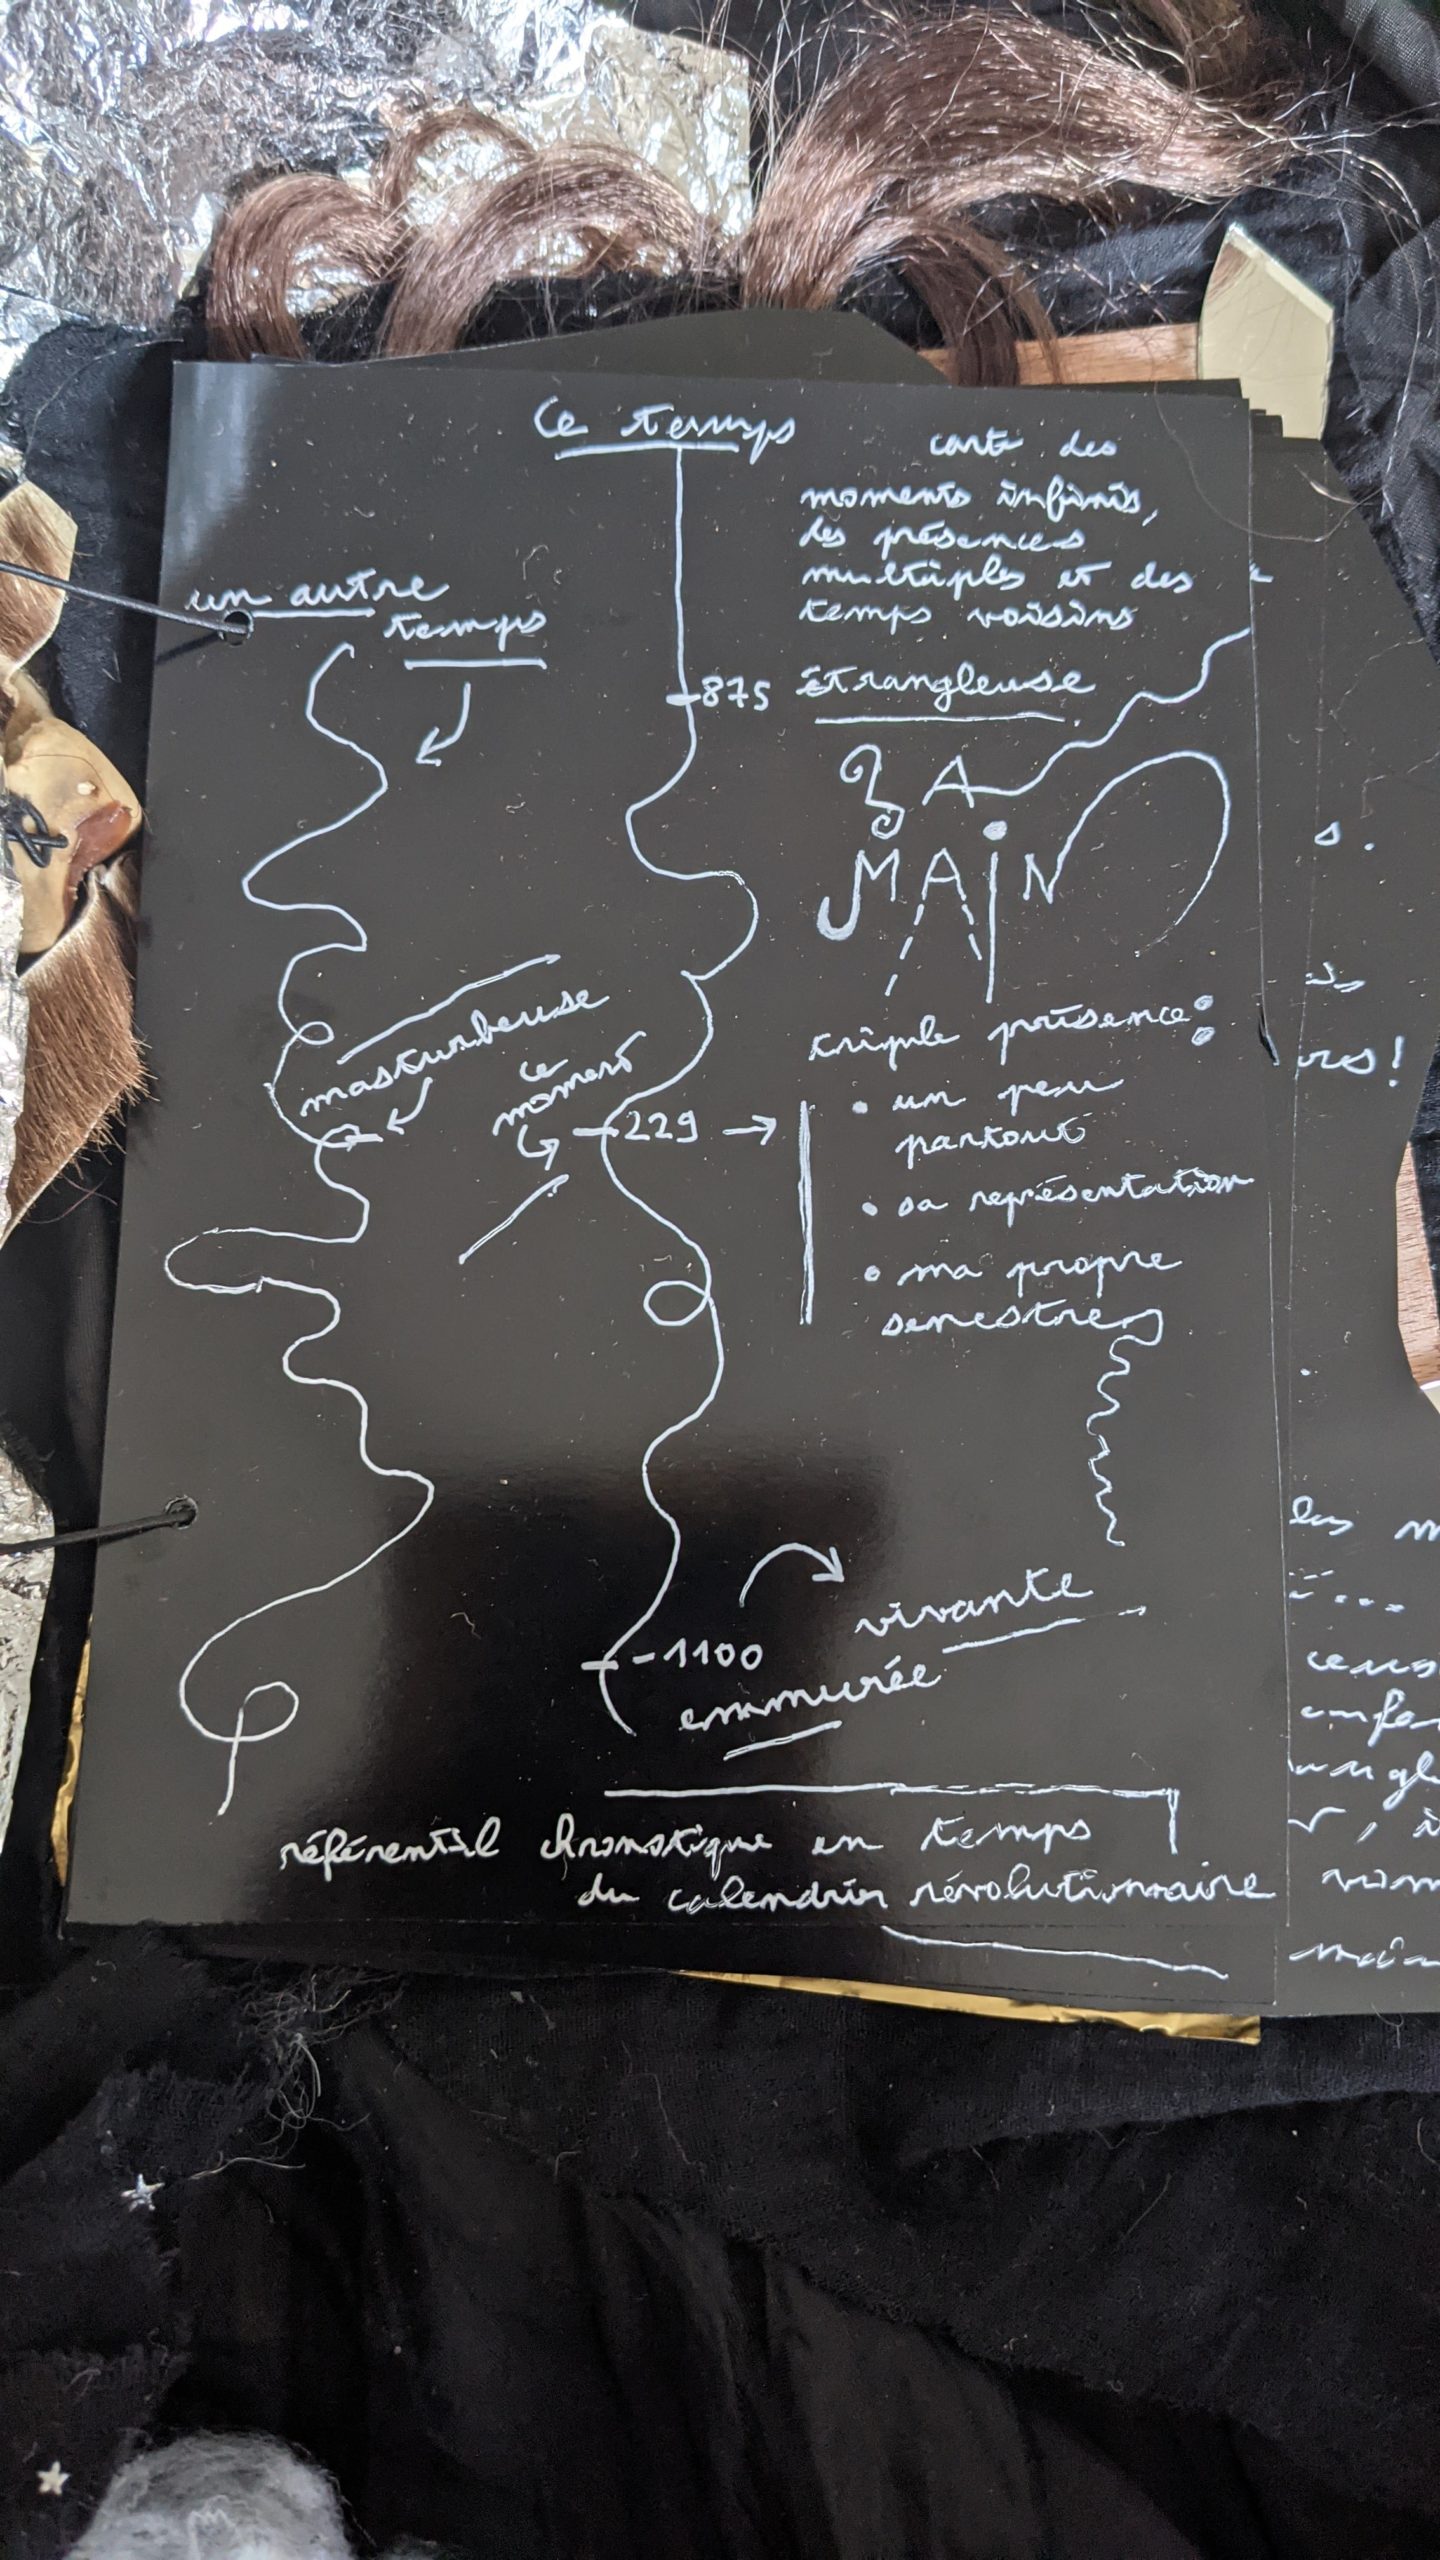 ce temps
carte des
moments infinis,
des présences
multiples et des
temps voisins
un autre
temps
875 étrangleuse
LA
MAIN
masturbeuse
ce
moment
229 →
triple présence :
• un peu
partout
• sa représentation
• ma propre
senestre
-1100
emmurée
vivante
référentil chronotique en temps
du calendrier révolutionnaire
s.
res!
les m
...
, i
main